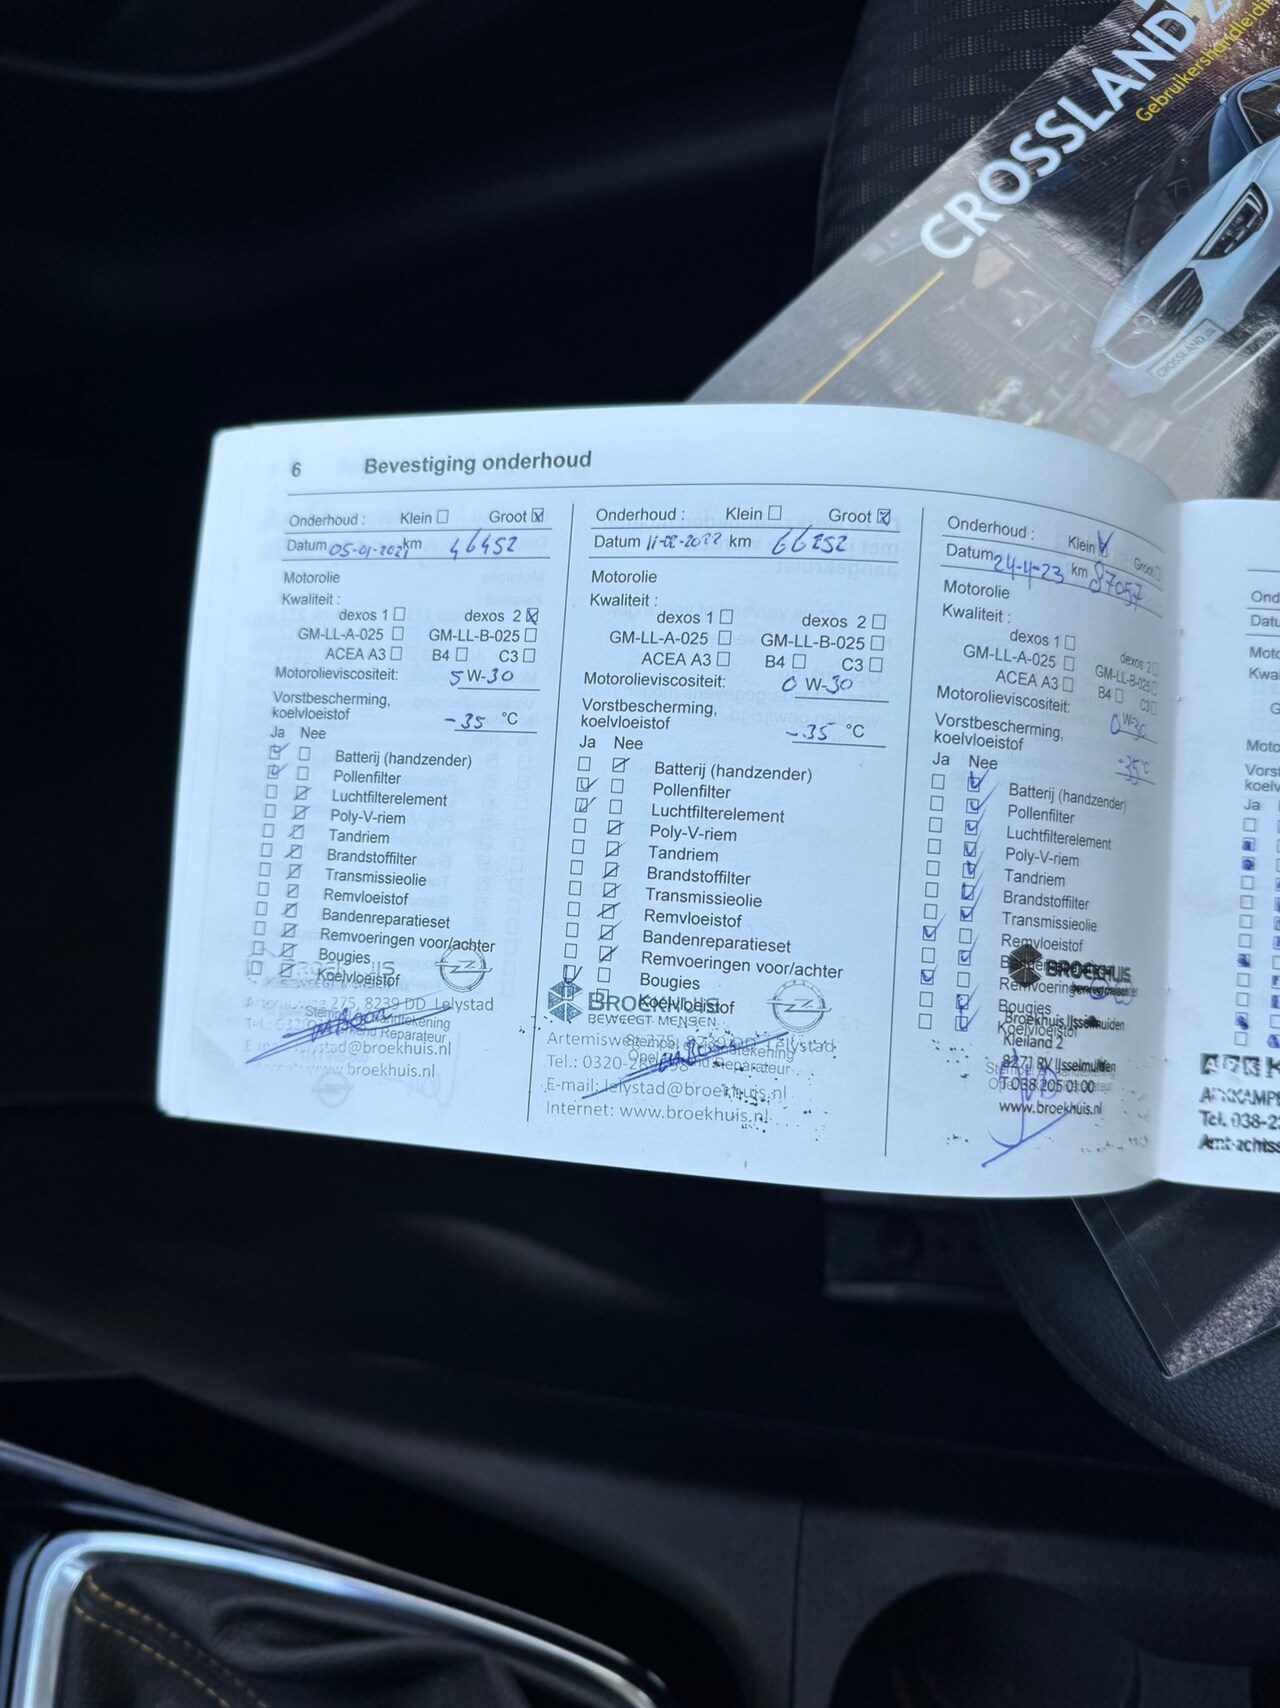 CROSSLAND
Gebruikershandleiding
CROSSLAND
6 Bevestiging onderhoud
Onderhoud : Klein Groot
Datum 05-01-2021 km 46452
Motorolie
Kwaliteit :
dexos 1 dexos 2
GM-LL-A-025 GM-LL-B-025
ACEA A3 B4 C3
Motorolieviscositeit: 5 W-30
Vorstbescherming,
koelvloeistof -35 °C
Ja Nee
Batterij (handzender)
Pollenfilter
Luchtfilterelement
Poly-V-riem
Tandriem
Brandstoffilter
Transmissieolie
Remvloeistof
Bandenreparatieset
Remvoeringen voor/achter
Bougies
Koelvloeistof
275, 8239 DD Lelystad
Reparateur
lelystad@broekhuis.nl
www.broekhuis.nl
Onderhoud : Klein Groot
Datum 11-02-2022 km 66252
Motorolie
Kwaliteit :
dexos 1 dexos 2
GM-LL-A-025 GM-LL-B-025
ACEA A3 B4 C3
Motorolieviscositeit: 0 W-30
Vorstbescherming,
koelvloeistof -35 °C
Ja Nee
Batterij (handzender)
Pollenfilter
Luchtfilterelement
Poly-V-riem
Tandriem
Brandstoffilter
Transmissieolie
Remvloeistof
Bandenreparatieset
Remvoeringen voor/achter
Bougies
Koelvloeistof
BROEKHUIS
BEWEEGT MENSEN
Artemisweg 275, 8239 DD Lelystad
Tel.: 0320-
E-mail: lelystad@broekhuis.nl
Internet: www.broekhuis.nl
Onderhoud : Klein Groot
Datum 24-4-23 km 87057
Motorolie
Kwaliteit :
dexos 1 dexos 2
GM-LL-A-025 GM-LL-B-025
ACEA A3 B4 C3
Motorolieviscositeit: 0 W-30
Vorstbescherming,
koelvloeistof -35 °C
Ja Nee
Batterij (handzender)
Pollenfilter
Luchtfilterelement
Poly-V-riem
Tandriem
Brandstoffilter
Transmissieolie
Remvloeistof
Remvoeringen
Bougies
Koelvloeistof
BROEKHUIS
Broekhuis IJsselmuiden
Kleiland 2
8271 RV IJsselmuiden
T 038 205 01 00
www.broekhuis.nl
Ja
Tel. 038-2